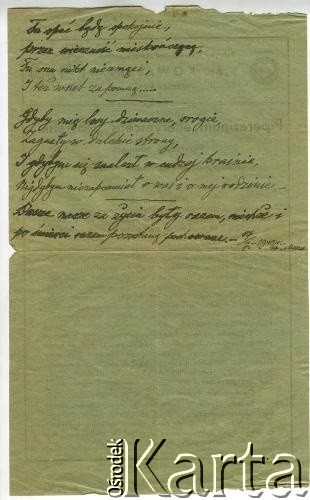 Tu spać będę spokojnie,
przez wieczność nieskończoną,
Tu snu nikt niezmąci,
I też wnet zapomną.....
Gdyby mię losy dziwaczne, srogie,
Zagnały w dalekie strony,
I gdybym się znalazł w cudzej krainie,
Nigdybym niezapomniał o mej rodzinie. -
Nasze serca za życia były razem, niechże i
po śmierci razem pochowane. -
Ośrodek
Karta